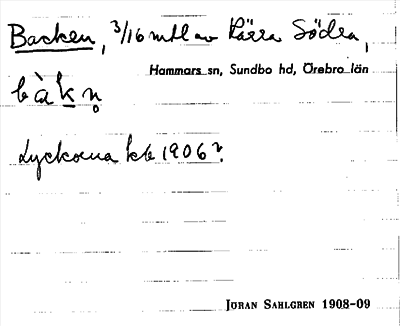 Backen, 3/16 mtl av Kärra Södra,
Hammars sn, Sundbo hd, Örebro län
bàkn̥
Lyckorna kb 1906?
JÖRAN SAHLGREN 1908-09